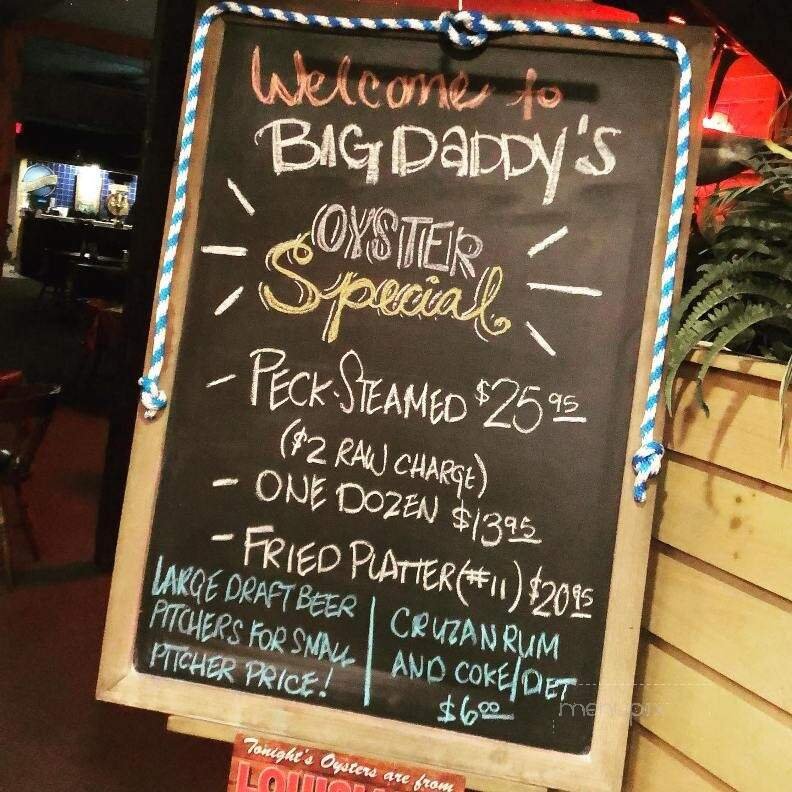 Welcome to
BIG DADDY'S
OYSTER
Special
- PECK STEAMED $25 95
($2 RAW CHARGE)
- ONE DOZEN $13 95
- FRIED PLATTER (#11) $20 95
LARGE DRAFT BEER
PITCHERS FOR SMALL
PITCHER PRICE!
CRUZAN RUM
AND COKE/DIET
$6 00
menupix
Tonight's Oysters are from